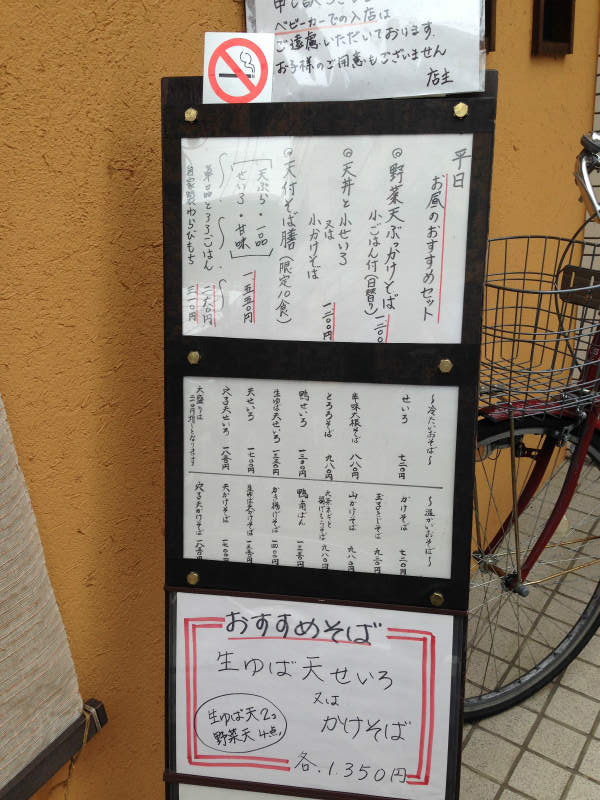 ベビーカーでの入店は
ご遠慮いただいております.
お子様のご用意もございません
店主
平日
お昼のおすすめセット
◎野菜天ぶっかけそば
小ごはん付(日替り)
◎天丼と小せいろ
又は
小かけそば 一二〇〇円
◎天付そば膳(限定10食)
天ぷら・一品
せいろ・甘味
一五五〇円
単品とろろごはん 二六〇円
自家製わらびもち 三一〇円
〜冷たいおそば〜
せいろ 七二〇円
辛味大根そば 八八〇円
とろろそば 九八〇円
鴨せいろ 一三〇〇円
生ゆば天せいろ 一三五〇円
天せいろ 一七〇〇円
穴子天せいろ
大盛りは
〜温かいおそば〜
かけそば 七二〇円
玉子とじそば 九三〇円
山かけそば 九八〇円
九八〇円
鴨南ばん
かき揚げそば
生ゆば天かけそば
天かけそば 一七〇〇円
穴子天かけそば
おすすめそば
生ゆば天せいろ
又は
かけそば
生ゆば天2コ
野菜天4点
各.1.350円